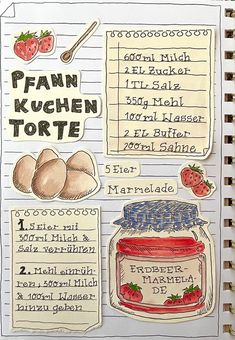 PFANN
KUCHEN
TORTE
600ml Milch
2 EL Zucker
1 TL Salz
350g Mehl
100ml Wasser
2 EL Butter
200ml Sahne
5 Eier
Marmelade
1. 5 Eier mit
300ml Milch &
Salz verrühren
2. Mehl einrüh-
ren, 300ml Milch
& 100ml Wasser
hinzu geben
ERDBEER-
MARMELA-
DE